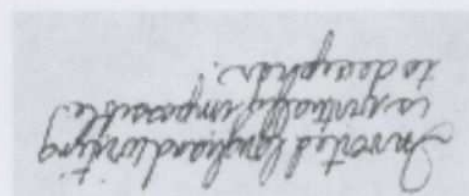 Inverted longhand writing
is virtually impossible
to decipher.